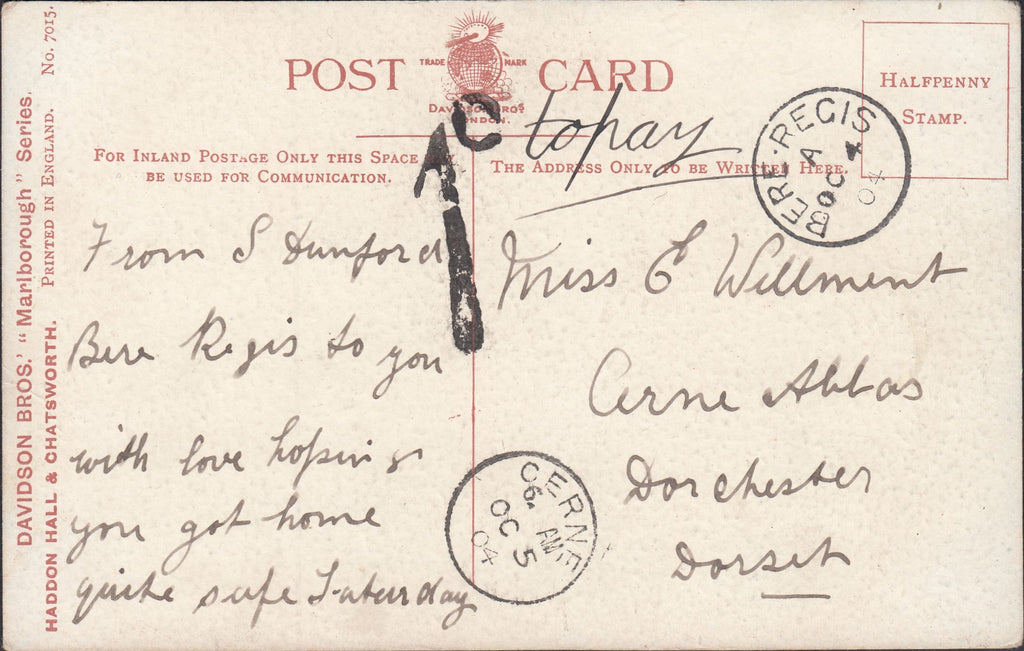 POST CARD
TRADE MARK
DAVIDSON BROS
LONDON.
HALFPENNY
STAMP.
FOR INLAND POSTAGE ONLY THIS SPACE MAY
BE USED FOR COMMUNICATION.
THE ADDRESS ONLY TO BE WRITTEN HERE.
1D to pay
BERE·REGIS
A
OC 4
04
From S Dunford
Bere Regis to you
with love hoping
you got home
quite safe Saturday
Miss E Wellment
Cerne Abbas
Dorchester
Dorset
CERNE
6. AM
OC 5
04
DAVIDSON BROS.' "Marlborough" Series.
HADDON HALL & CHATSWORTH. PRINTED IN ENGLAND. No. 7015.